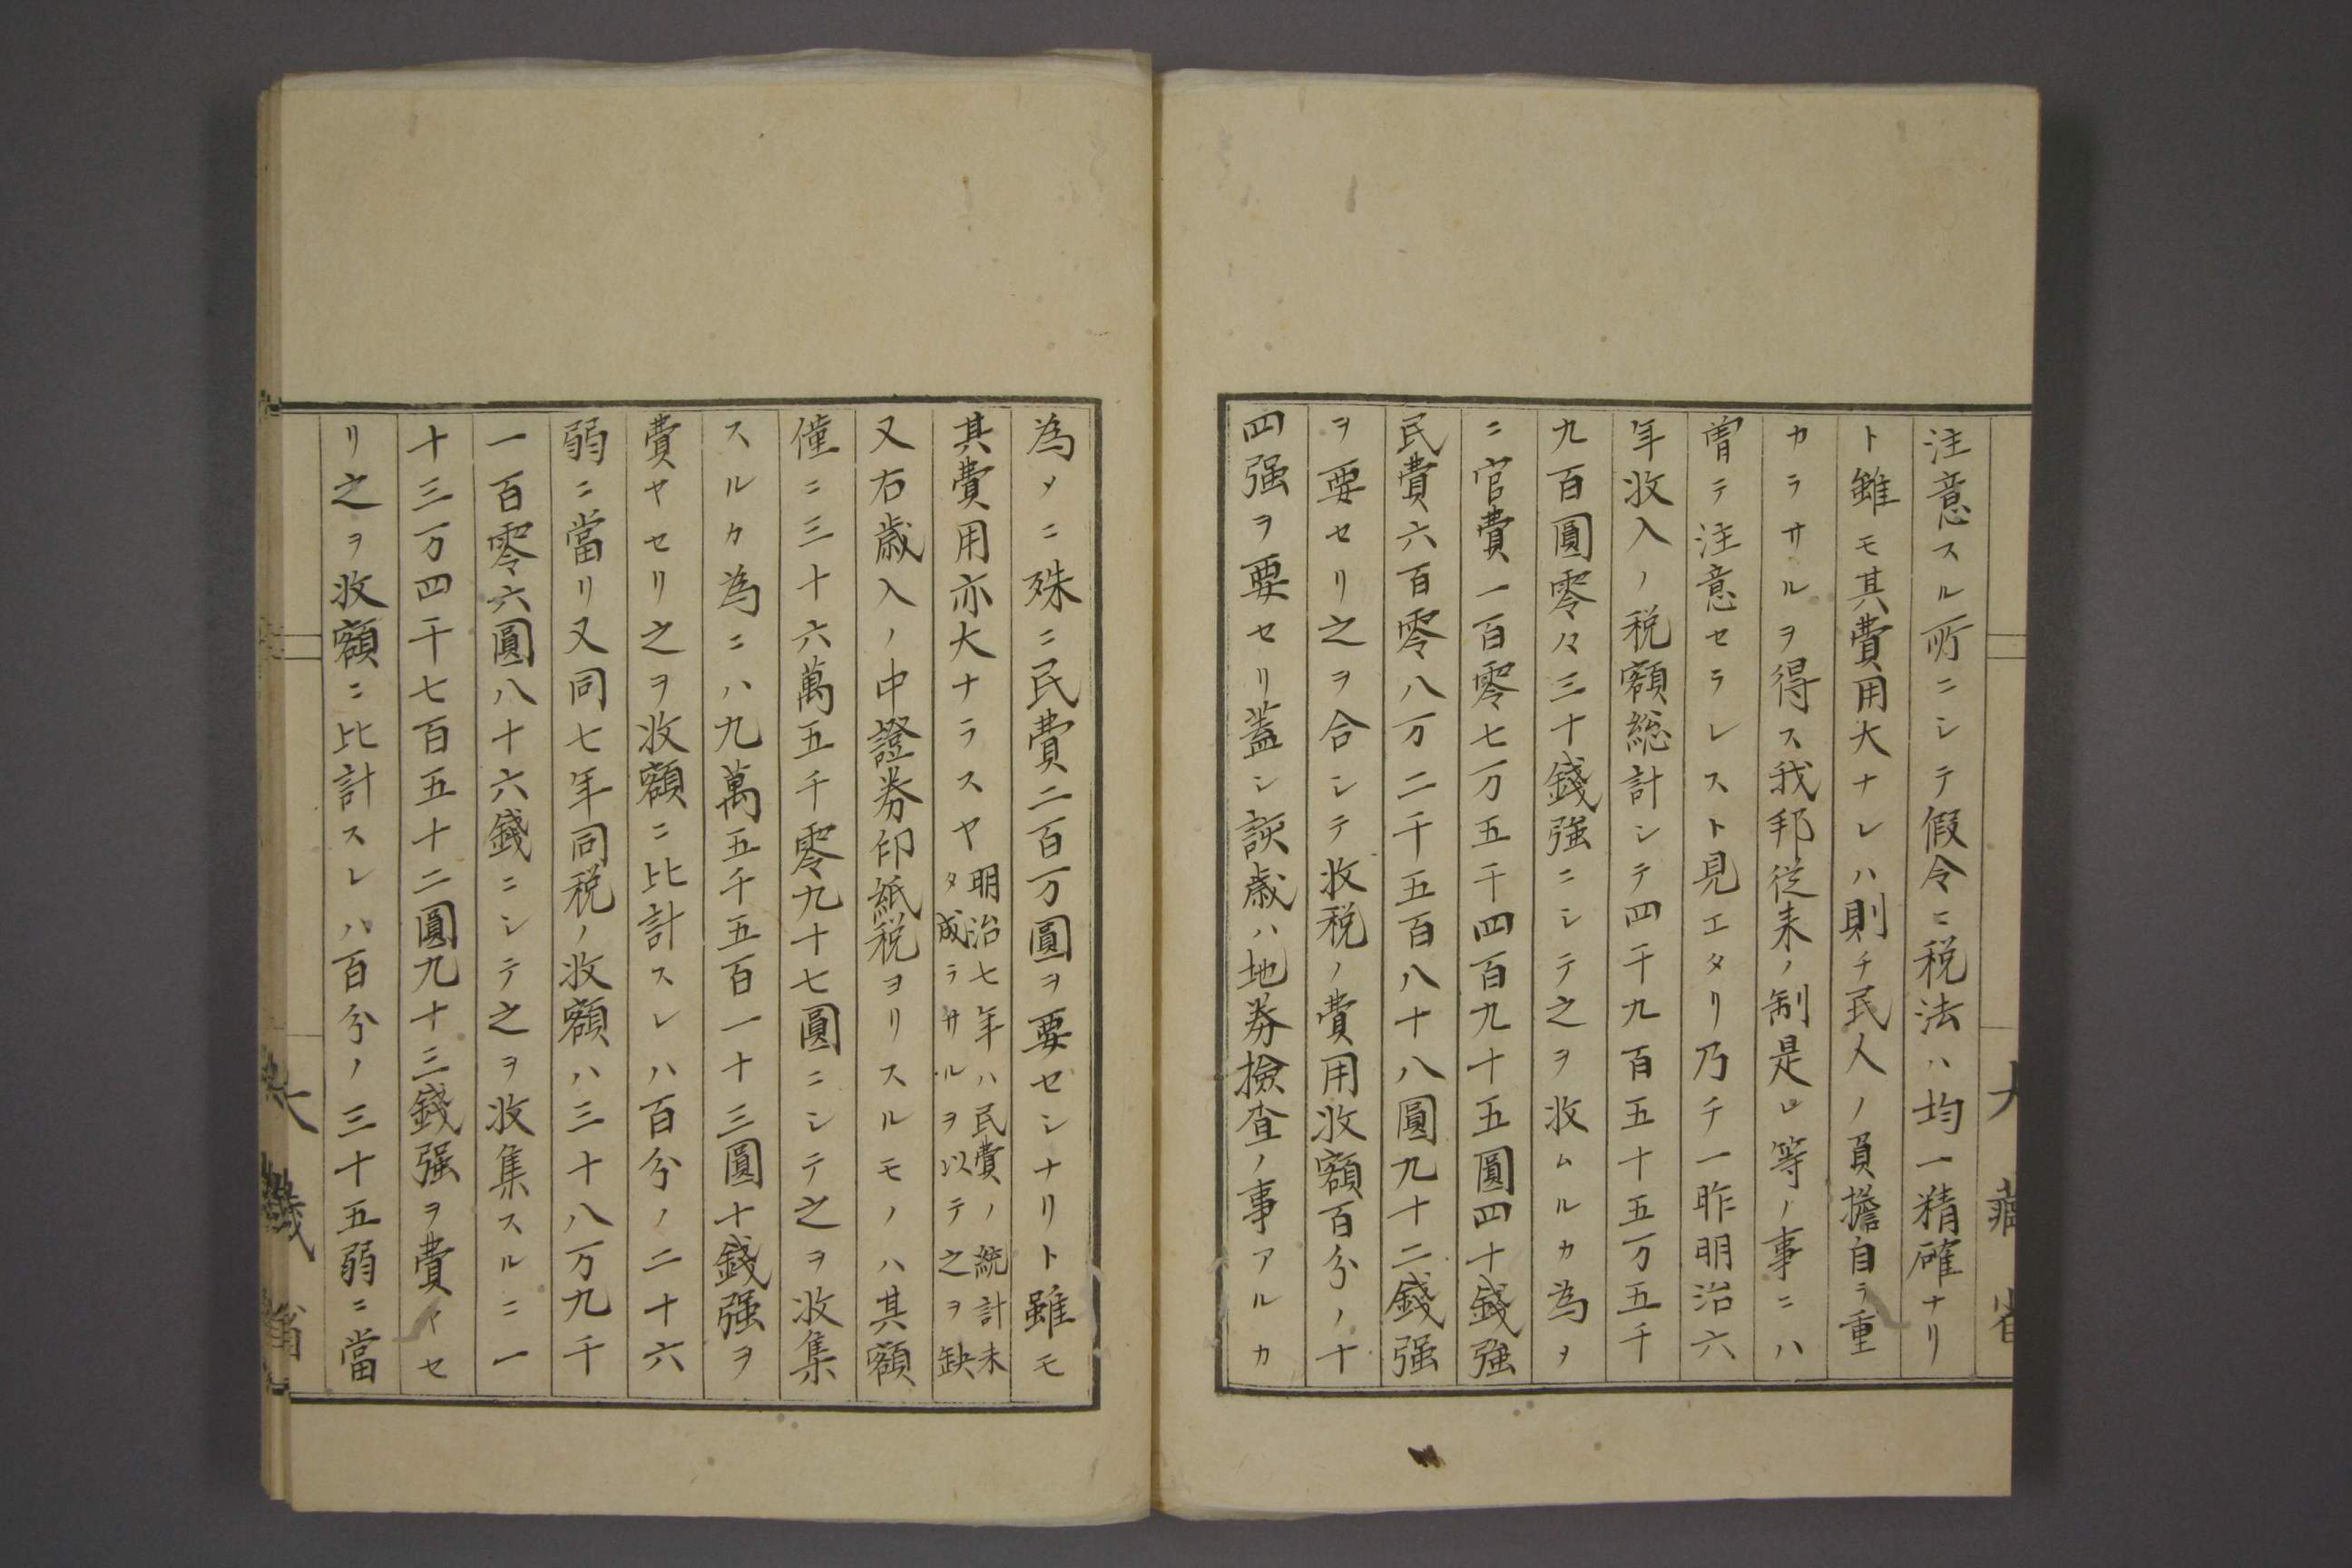 注意スル所ニシテ假令ニ税法ハ均一精確ナリ
ト雖モ其費用大ナレハ則チ民人ノ負擔自ラ重
カラサルヲ得ス我邦従来ノ制是レ等ノ事ニハ
曽テ注意セラレスト見エタリ乃チ一昨明治六
年收入ノ税額総計シテ四千九百五十五万五千
九百圓零々三十錢强ニシテ之ヲ收ムルカ為ヲ
ニ官費一百零七万五千四百九十五圓四十錢強
民費六百零八万二千五百八十八圓九十二錢强
ヲ要セリ之ヲ合シテ收税ノ費用收額百分ノ十
四强ヲ要セリ蓋シ該歳ハ地券撿査ノ事アルカ
為メニ殊ニ民費二百万圓ヲ要セシナリト雖モ
其費用亦大ナラスヤ明治七年ハ民費ノ統計未
タ成ラサルヲ以テ之ヲ缺
又右歳入ノ中證券印紙税ヨリスルモノハ其額
僅ニ三十六萬五千零九十七圓ニシテ之ヲ收集
スルカ為ニハ九萬五千五百一十三圓十錢强ヲ
費ヤセリ之ヲ收額ニ比計スレハ百分ノ二十六
弱ニ當リ又同七年同税ノ收額ハ三十八万九千
一百零六圓八十六錢ニシテ之ヲ收集スルニ一
十三万四千七百五十二圓九十三錢强ヲ費イセ
リ之ヲ收額ニ比計スレハ百分ノ三十五弱ニ當